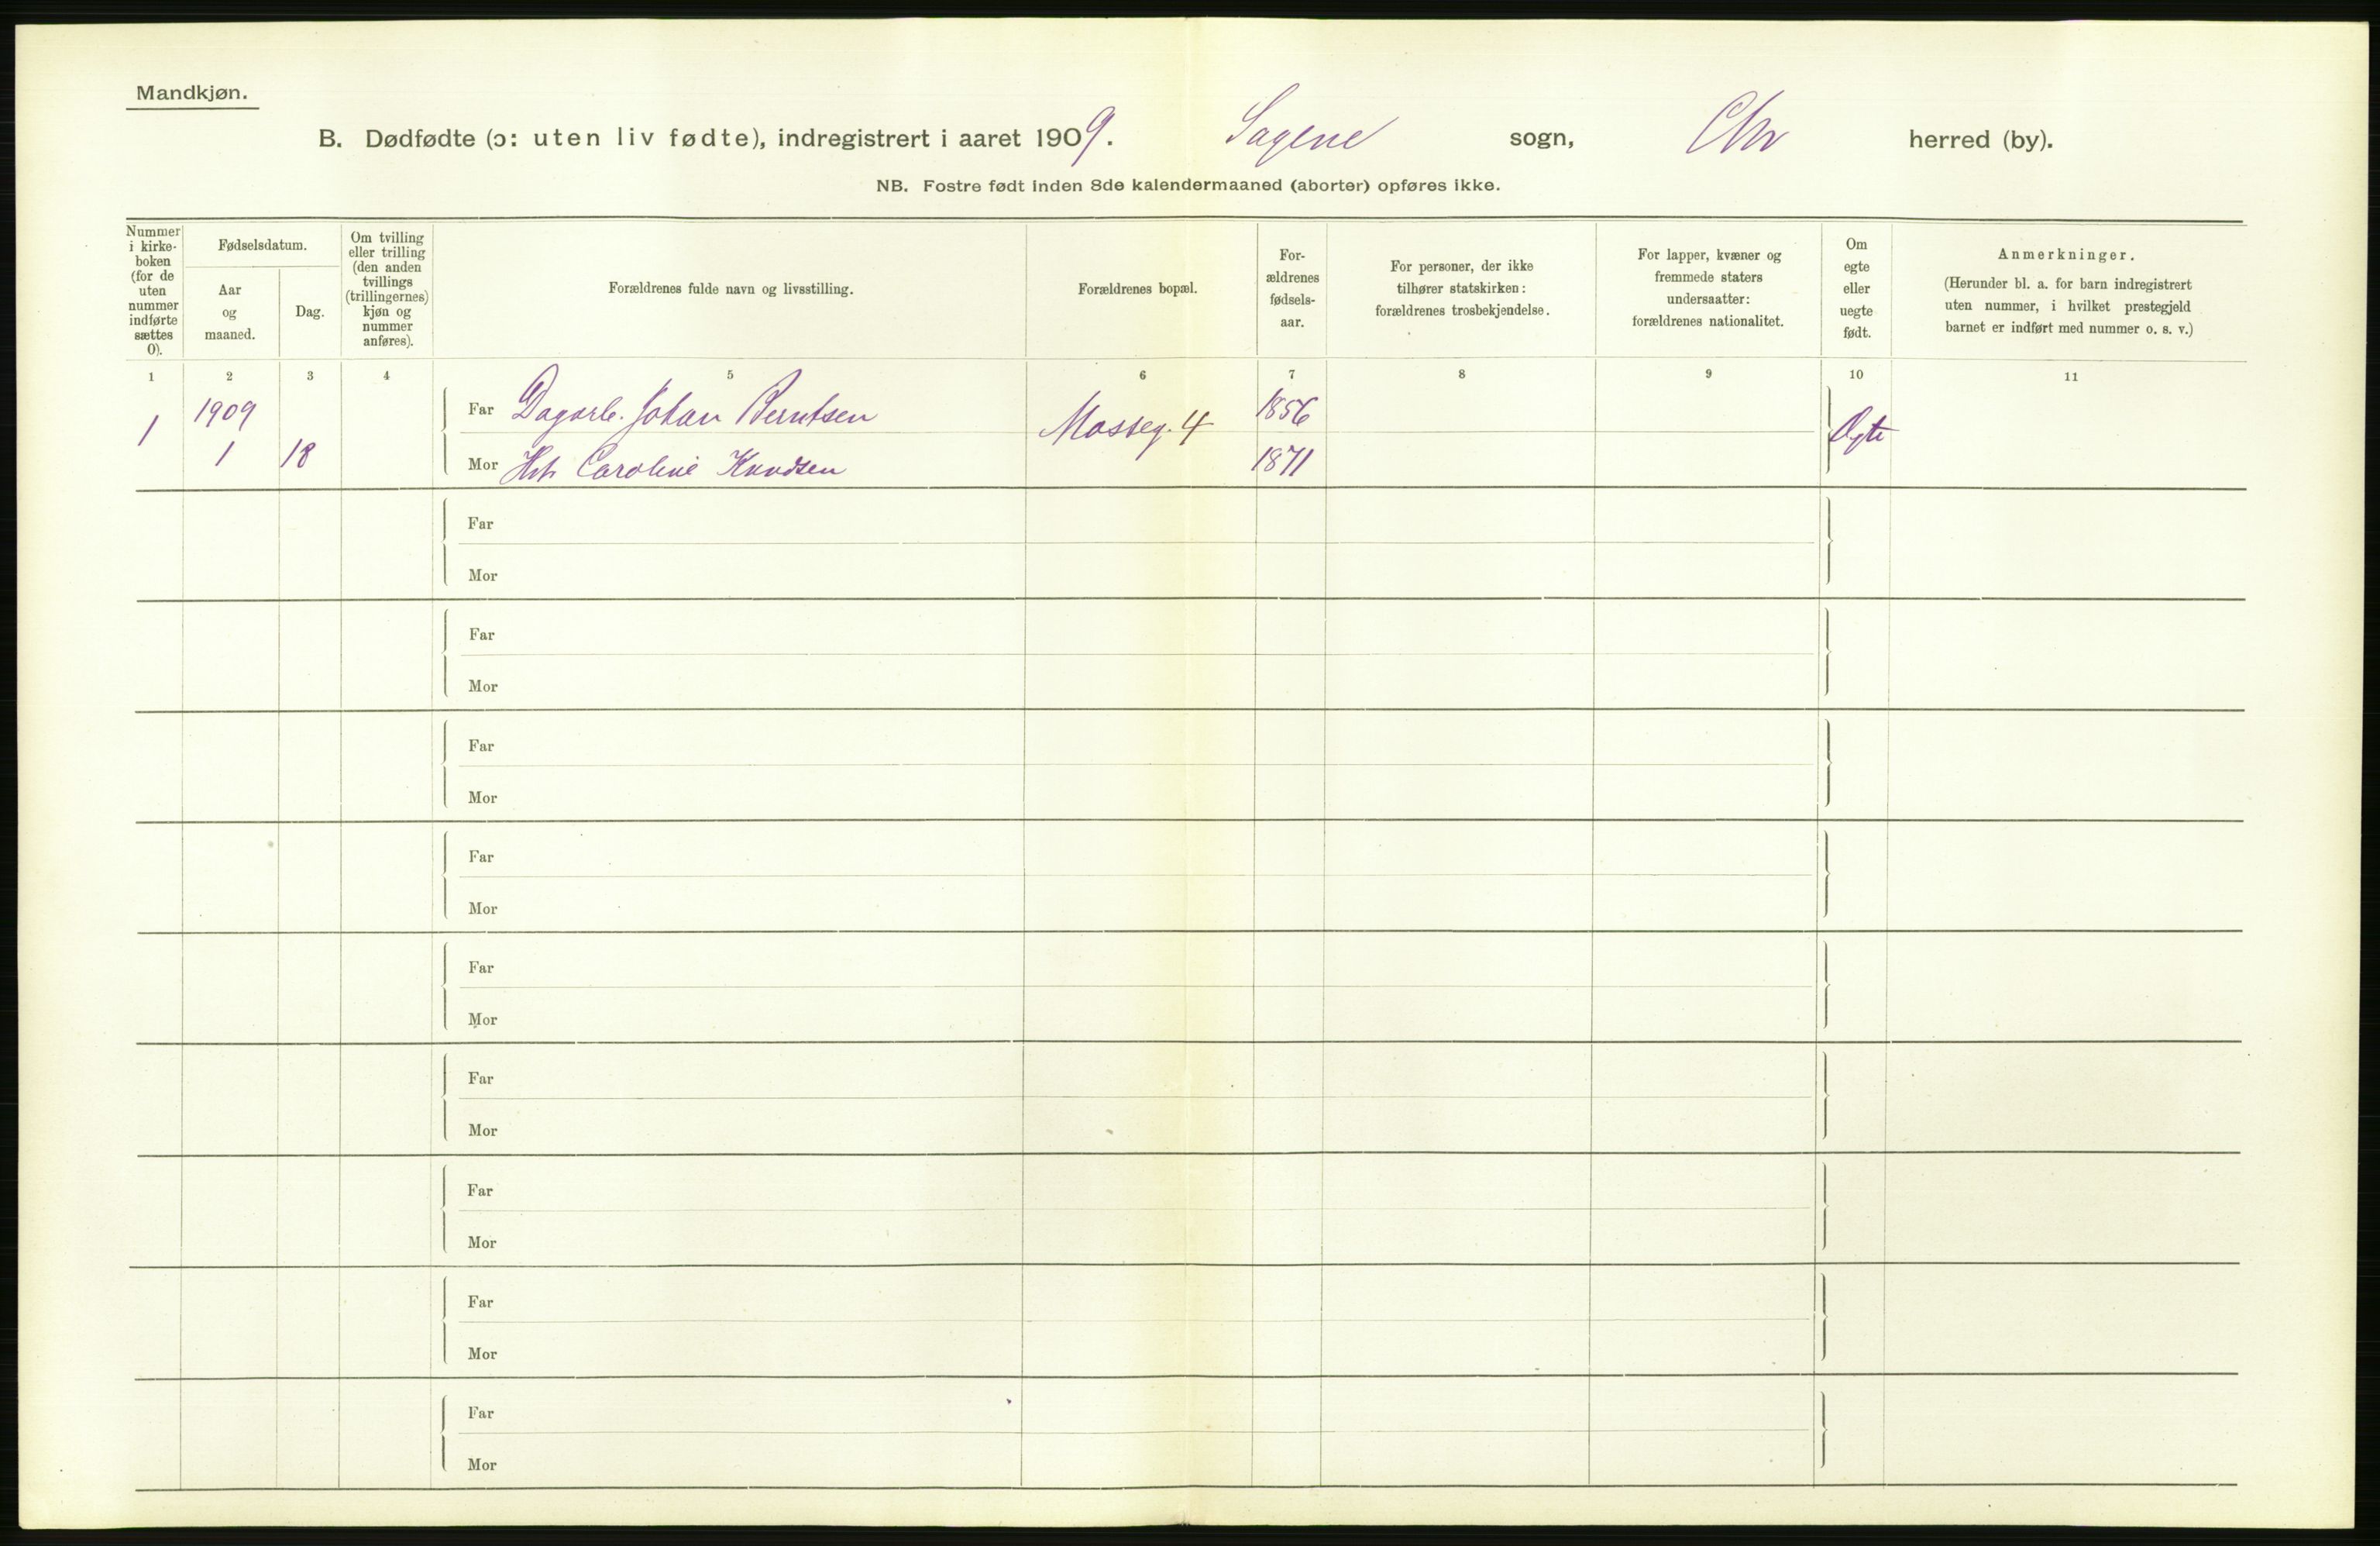 Mandkjøn.
B. Dødfødte (ɔ: uten liv fødte), indregistrert i aaret 1909. Sagene sogn, Chr herred (by).
NB. Fostre født inden 8de kalendermaaned (aborter) opføres ikke.
Nummer i kirke-boken (for de uten nummer indførte sættes 0).
Fødselsdatum.
Aar og maaned.
Dag.
Om tvilling eller trilling (den anden tvillings (trillingernes) kjøn og nummer anføres).
Forældrenes fulde navn og livsstilling.
Forældrenes bopæl.
For-ældrenes fødsels-aar.
For personer, der ikke tilhører statskirken: forældrenes trosbekjendelse.
For lapper, kvæner og fremmede staters undersaatter: forældrenes nationalitet.
Om egte eller uegte født.
Anmerkninger.
(Herunder bl. a. for barn indregistrert uten nummer, i hvilket prestegjeld barnet er indført med nummer o. s. v.)
1 2 3 4 5 6 7 8 9 10 11
1 1909 1 18
Far Dagarb. Johan Berntsen Mosseg. 4 1856 Ægte
Mor Hst. Caroline Knudsen 1871
Far
Mor
Far
Mor
Far
Mor
Far
Mor
Far
Mor
Far
Mor
Far
Mor
Far
Mor
Far
Mor